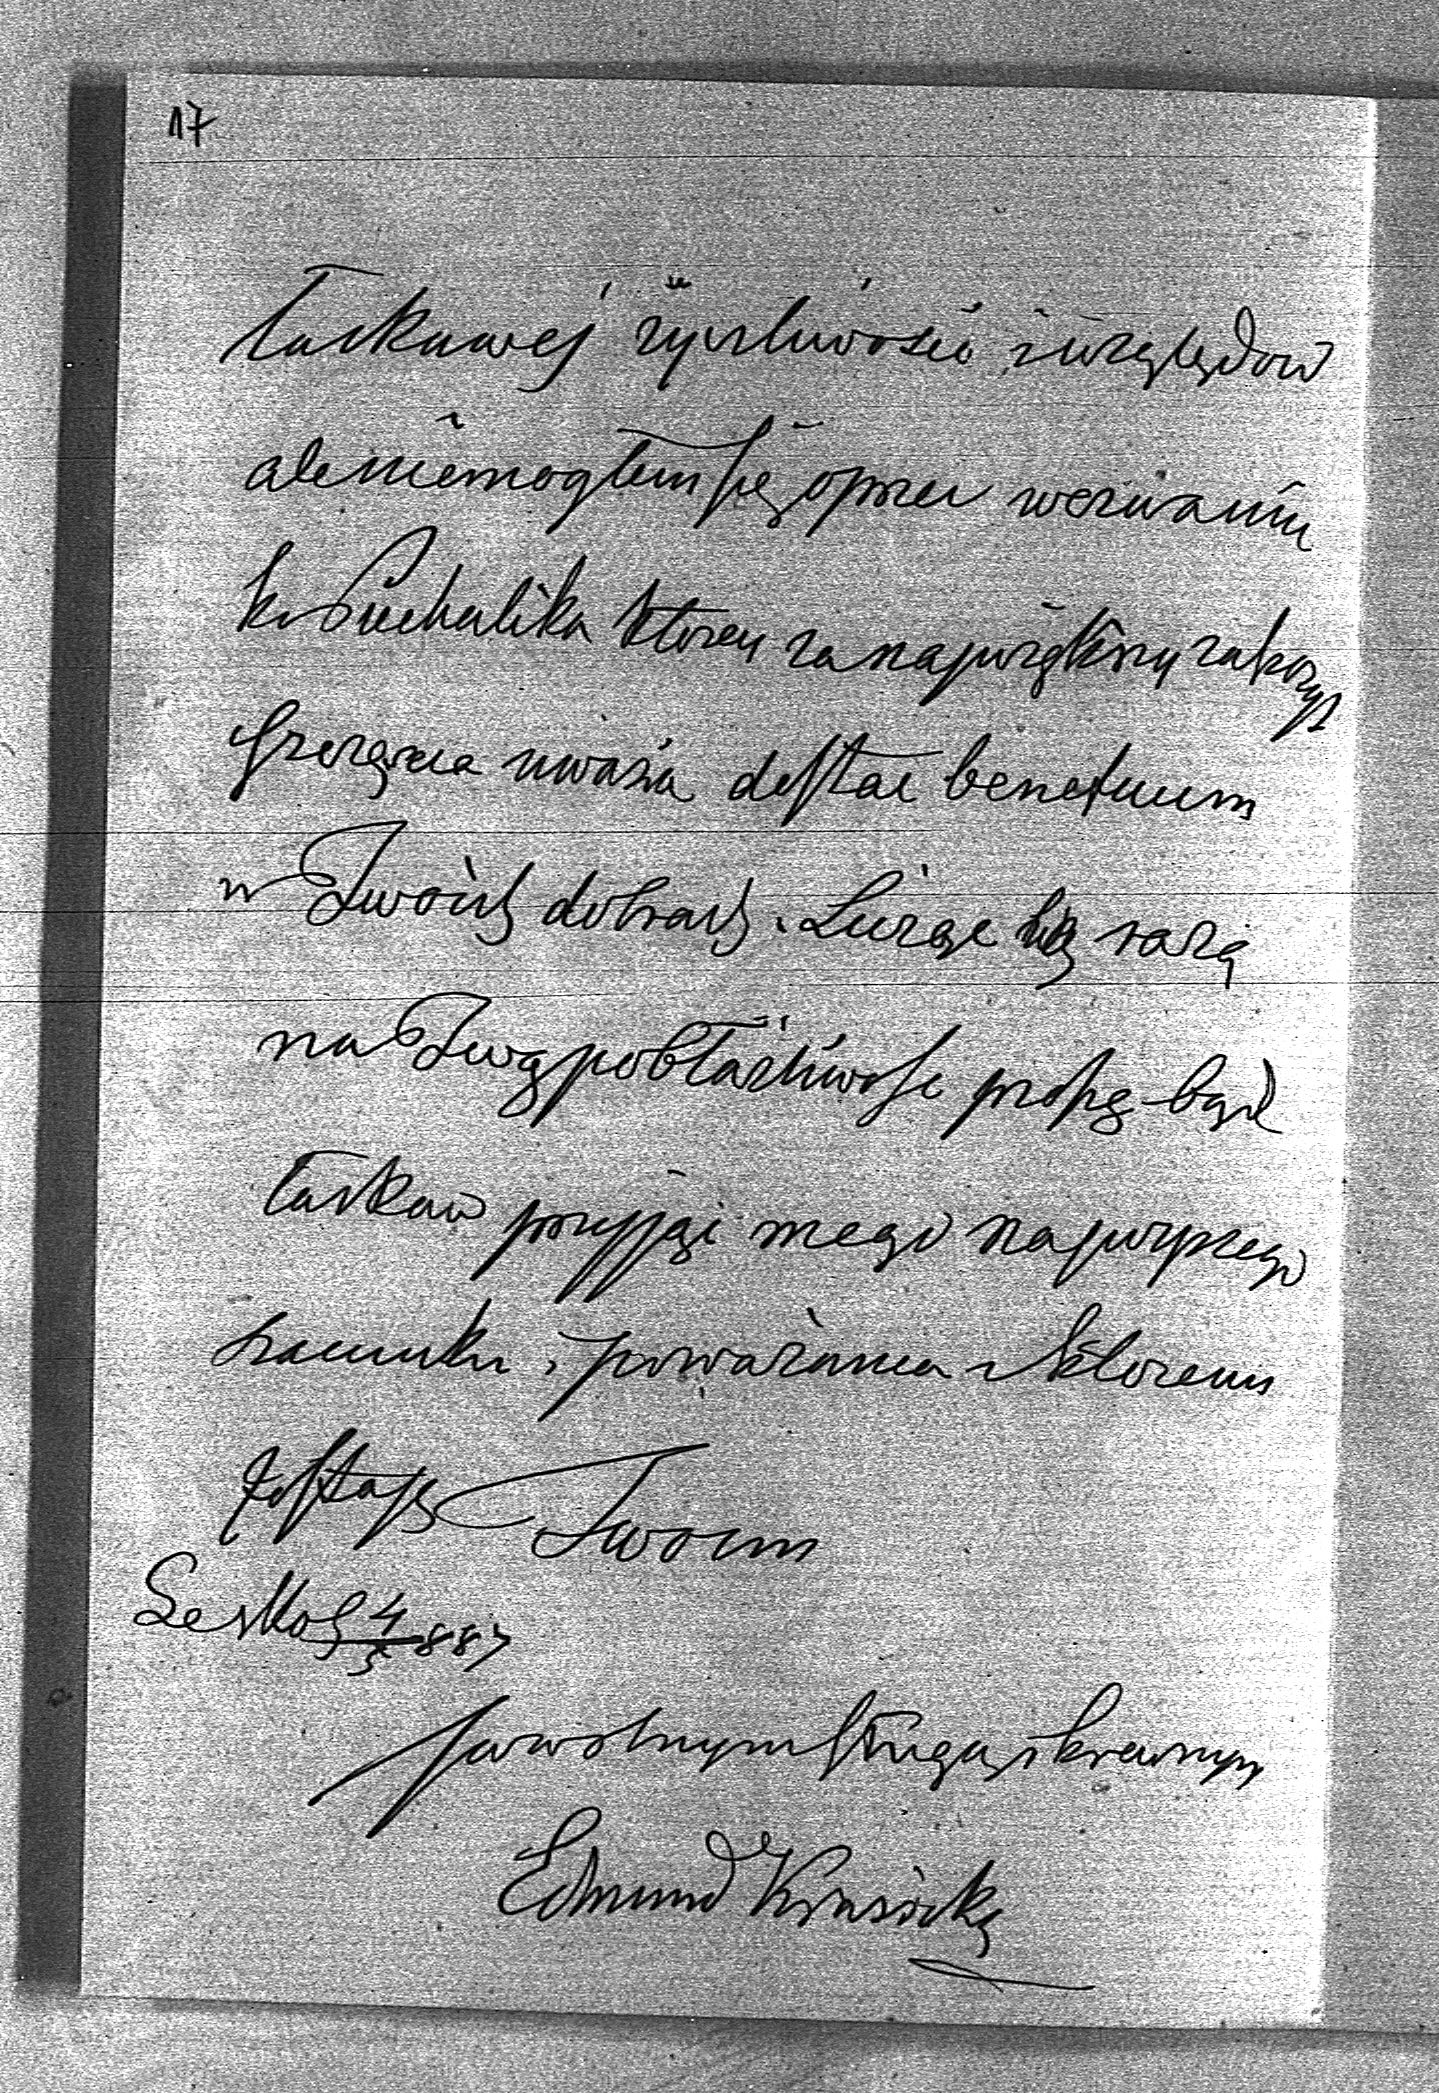 17
łaskawej życzliwości i względów
ale niemogłem się oprzeć wezwaniu
ks Puchalika ktory za największy zakczyt
szczęscia uważa dostać beneficium
w Twoich dobrach. Licząc tą razą
na Twą pobłażliwość proszę bądź
łaskaw przyjąć mego najwyszego
szacunku i poważania z ktorem
zostaję Twoim
Lesko 4/5 887
powolnym sługą i krewnym
Edmund Krasicki